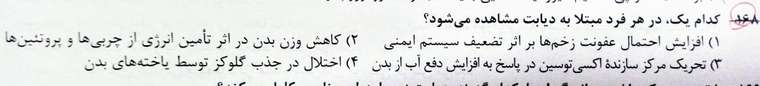 ۱۶۸- کدام یک، در هر فرد مبتلا به دیابت مشاهده می‌شود؟
۱) افزایش احتمال عفونت زخم‌ها بر اثر تضعیف سیستم ایمنی ۲) کاهش وزن بدن در اثر تأمین انرژی از چربی‌ها و پروتئین‌ها
۳) تحریک مرکز سازندهٔ اکسی‌توسین در پاسخ به افزایش دفع آب از بدن ۴) اختلال در جذب گلوکز توسط یاخته‌های بدن